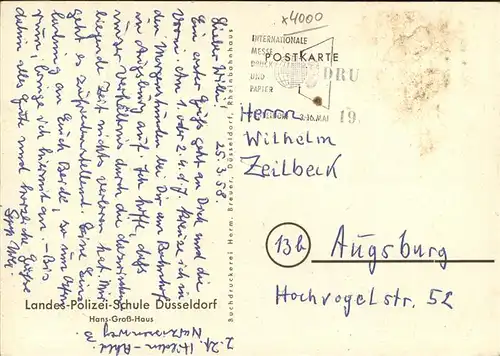 x4000
INTERNATIONALE
MESSE
DRUCK
UND
PAPIER
3.-16.MAI
POSTKARTE
DRU
19.
Herrn
Wilhelm
Zeilbeck
13b Augsburg
Hochvogelstr. 52
25.3.58.
Lieber Willi!
Ein erster Gruß geht an Dich und die
Vroni. Am 1. oder 2.4. d.J. kreuze ich in
den Morgenstunden bei Dir am Bahnhof
in Augsburg auf. Ich hoffe, daß
unser Verhältnis durch die dazwischen
liegende Zeit nichts verloren hat. Mir
geht es zufriedenstellend. Seine Ein
ladung an Euch Beide, so im
kündige ich hiermit an. – Bis
dahin alles Gute und herzliche Grüße
Landes-Polizei-Schule Düsseldorf
Hans-Groß-Haus
Z. Zt. Hilden - Rhld.
Buchdruckerei Herm. Breuer, Düsseldorf, Rheinbahnhaus